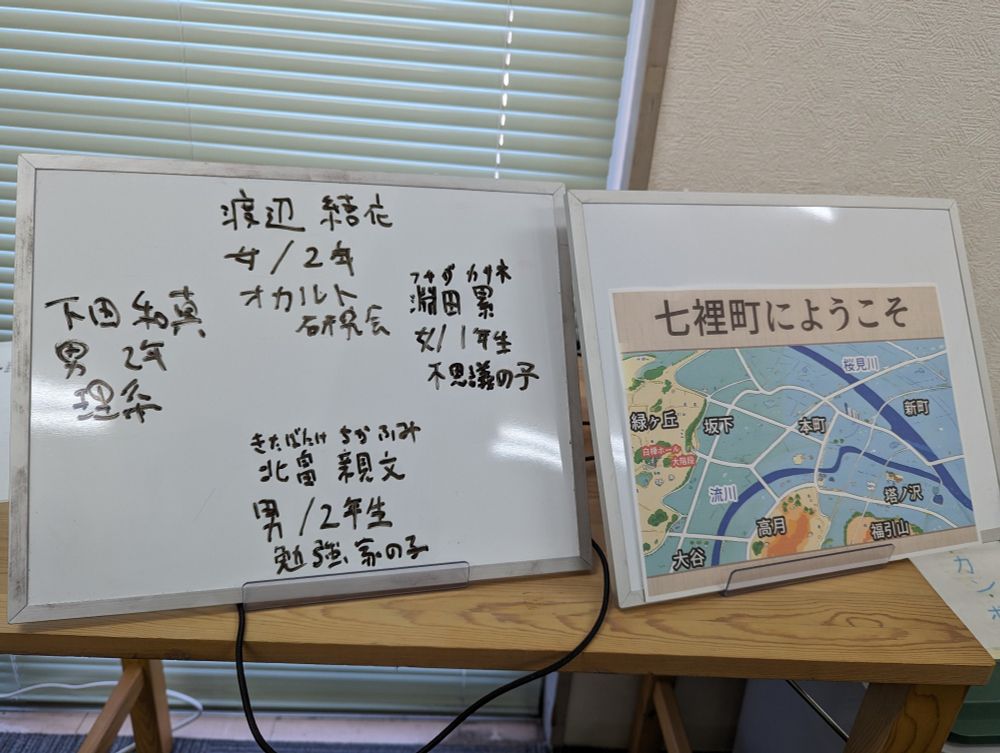 渡辺 結衣
女/2年
オカルト
研究会
下田 和真
男 2年
理系
フチダ カサネ
淵田 累
女/1年生
不思議の子
きたばたけ ちかふみ
北畠 親文
男/2年生
勉強家の子
七裡町にようこそ
桜見川
緑ヶ丘
坂下
本町
新町
白樺ホール
大階段
流川
塔ノ沢
高月
福引山
大谷
カン